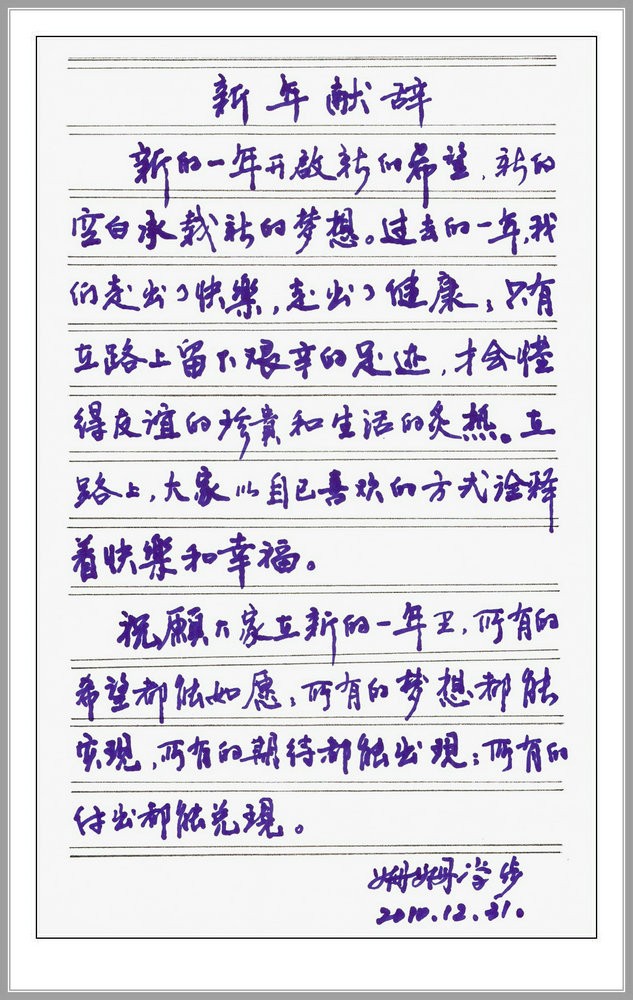 新年献辞
新的一年开启新的希望,新的
空白承载新的梦想。过去的一年,我
们走出了快樂,走出了健康;只有
在路上留下艰辛的足迹,才会懂
得友谊的珍贵和生活的炙热。在
路上,大家以自己喜欢的方式诠释
着快樂和幸福。
祝愿大家在新的一年里,所有的
希望都能如愿;所有的梦想都能
实现,所有的期待都能出现;所有的
付出都能兑现。
姗姗学步
2010.12.31.